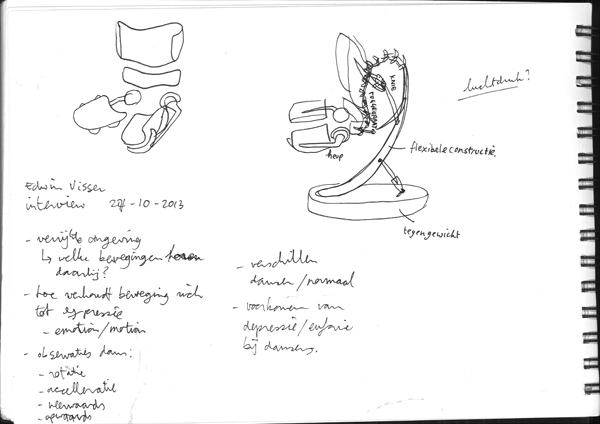 luchtdruk?
heup
flexibele constructie.
tegengewicht
Edwin Visser
interview 27-10-2013
- verrijkte omgeving
↳ welke bewegingen horen
daarbij?
- hoe verhoudt beweging zich
tot expressie
- emotion/motion
- observaties dans:
- rotatie
- acceleratie
- neerwaards
- opwaards
- verschillen
dansen/normaal
- voorkomen van
depressie/euforie
bij dansers.